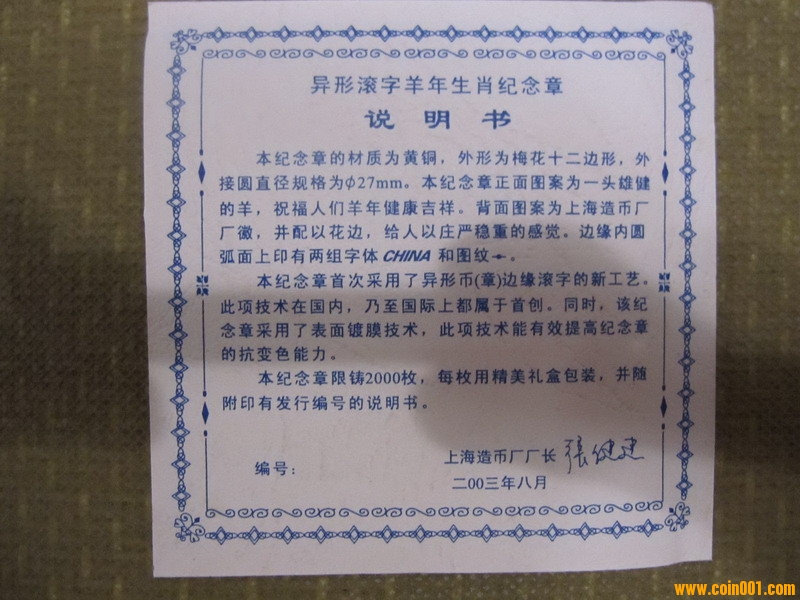 异形滚字羊年生肖纪念章
说明书
本纪念章的材质为黄铜，外形为梅花十二边形，外
接圆直径规格为φ27mm。本纪念章正面图案为一头雄健
的羊，祝福人们羊年健康吉祥。背面图案为上海造币厂
厂徽，并配以花边，给人以庄严稳重的感觉。边缘内圆
弧面上印有两组字体CHINA和图纹。
本纪念章首次采用了异形币(章)边缘滚字的新工艺。
此项技术在国内，乃至国际上都属于首创。同时，该纪
念章采用了表面镀膜技术，此项技术能有效提高纪念章
的抗变色能力。
本纪念章限铸2000枚，每枚用精美礼盒包装，并随
附印有发行编号的说明书。
上海造币厂厂长 張健建
编号：
二00三年八月
www.coin001.com